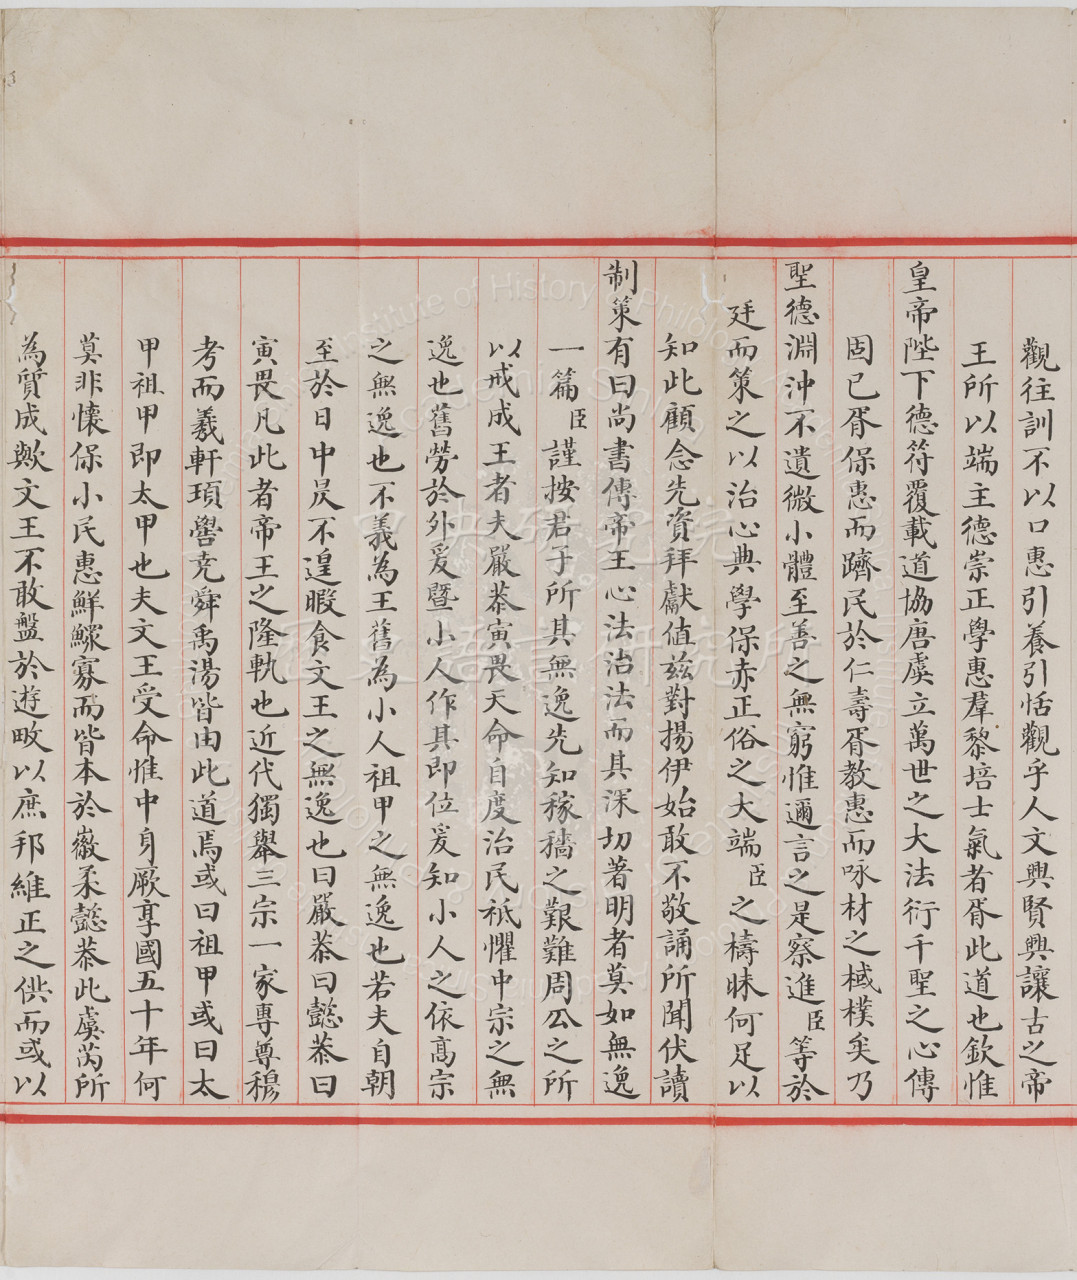 觀往訓不以口惠引養引恬觀乎人文興賢興讓古之帝
王所以端主德崇正學惠羣黎培士氣者胥此道也欽惟
皇帝陛下德符覆載道協唐虞立萬世之大法衍千聖之心傳
固已胥保惠而躋民於仁壽胥教惠而咏材之棫樸矣乃
聖德淵沖不遺微小體至善之無窮惟邇言之是察進臣等於
廷而策之以治心典學保赤正俗之大端臣之檮昧何足以
知此顧念先資拜獻值茲對揚伊始敢不敬誦所聞伏讀
制策有曰尚書傳帝王心法治法而其深切著明者莫如無逸
一篇臣謹按君子所其無逸先知稼穡之艱難周公之所
以戒成王者夫嚴恭寅畏天命自度治民祗懼中宗之無
逸也舊勞於外爰暨小人作其即位爰知小人之依高宗
之無逸也不義為王舊為小人祖甲之無逸也若夫自朝
至於日中昃不遑暇食文王之無逸也曰嚴恭曰懿恭曰
寅畏凡此者帝王之隆軌也近代獨舉三宗一家專尊穆
考而羲軒頊嚳堯舜禹湯皆由此道焉或曰祖甲或曰太
甲祖甲即太甲也夫文王受命惟中身厥享國五十年何
莫非懷保小民惠鮮鰥寡而皆本於徽柔懿恭此虞芮所
為質成歟文王不敢盤於遊畋以庶邦維正之供而或以
Institute of History & Philology
Academia Sinica
歷史語言研究所